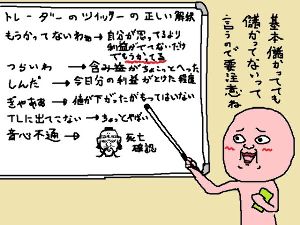 トレーダーのツイッターの正しい解釈
もうかってないわぁ → 自分が思ってるより
利益がでてないだけ
でもうかってる
つらいわ → 含み益がちょこっとへった
しんだ → 今日分の利益がとけた程度
ぎゃああ → 値が下がったがもってはいない
TLに出てこない → ちょっとやばい
音心不通 → 死亡
確認
基本儲かってても
儲かってないって
言うので要注意ね